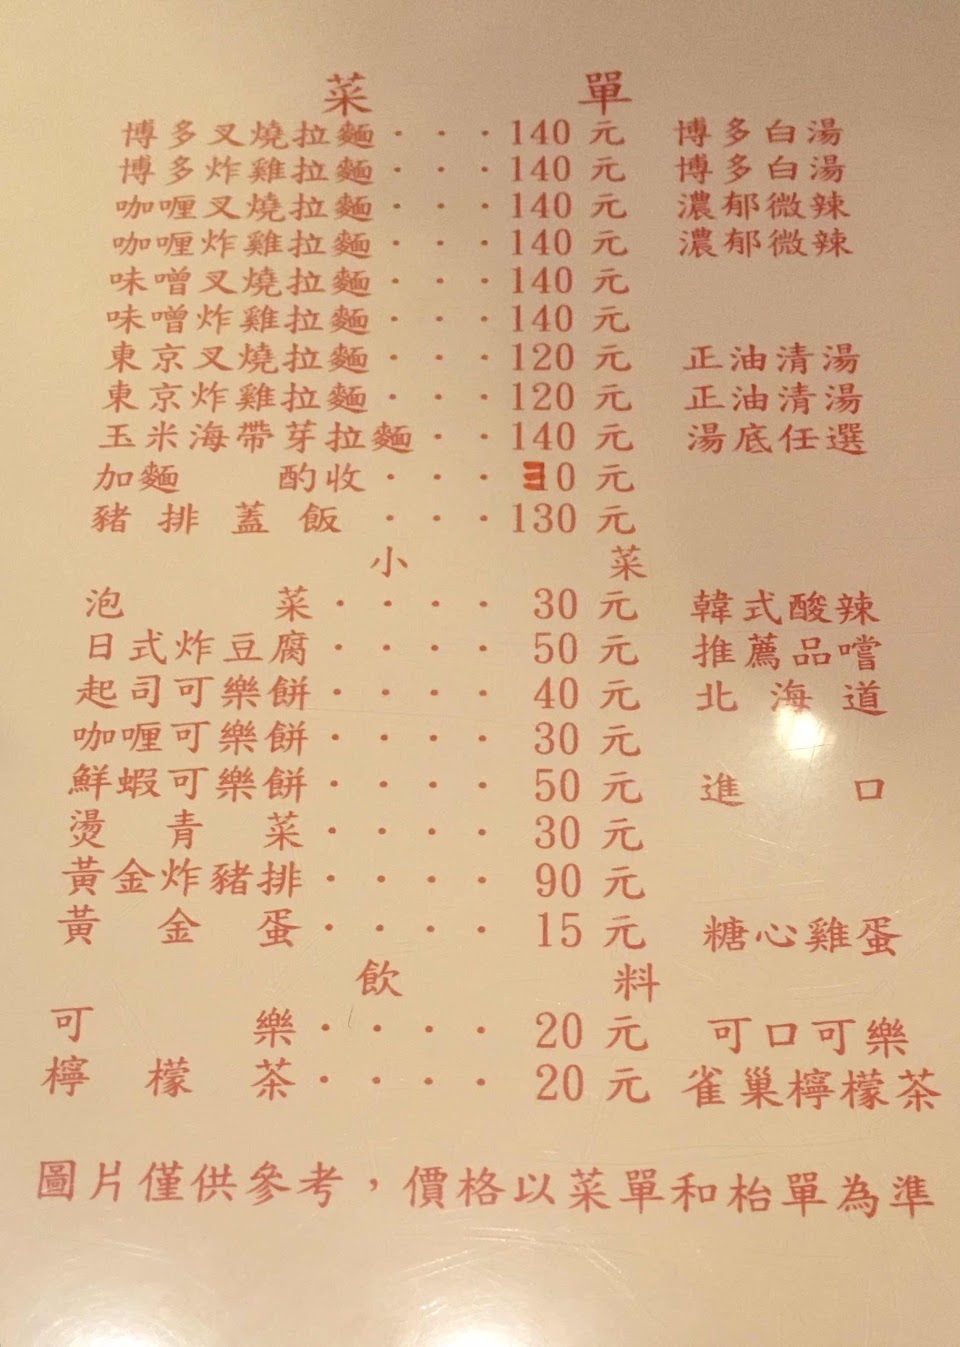 菜單
博多叉燒拉麵···140元 博多白湯
博多炸雞拉麵···140元 博多白湯
咖喱叉燒拉麵···140元 濃郁微辣
咖喱炸雞拉麵···140元 濃郁微辣
味噌叉燒拉麵···140元
味噌炸雞拉麵···140元
東京叉燒拉麵···120元 正油清湯
東京炸雞拉麵···120元 正油清湯
玉米海帶芽拉麵··140元 湯底任選
加麵 酌收···30元
豬排蓋飯···130元
小菜
泡菜····30元 韓式酸辣
日式炸豆腐····50元 推薦品嚐
起司可樂餅····40元 北海道
咖喱可樂餅····30元
鮮蝦可樂餅····50元 進口
燙青菜····30元
黃金炸豬排····90元
黃金蛋····15元 糖心雞蛋
飲料
可樂····20元 可口可樂
檸檬茶····20元 雀巢檸檬茶
圖片僅供參考，價格以菜單和枱單為準